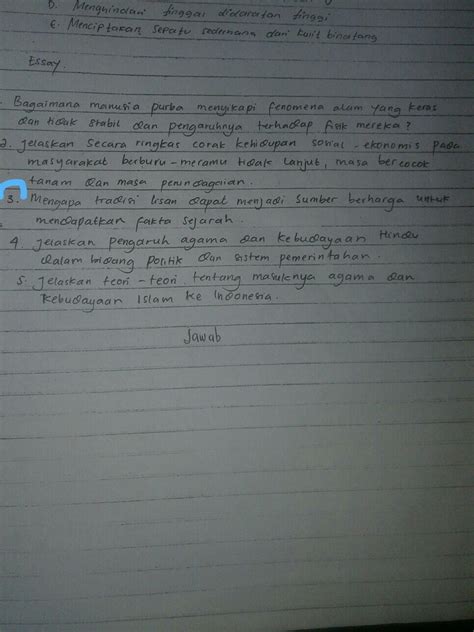 D. Menghindari tinggal didaratan tinggi
E. Menciptakan sepatu sederhana dari kulit binatang
Essay.
Bagaimana manusia purba menyikapi fenomena alam yang keras
dan tidak stabil dan pengaruhnya terhadap fisik mereka ?
2. Jelaskan secara ringkas corak kehidupan sosial - ekonomis pada
masyarakat berburu - meramu tidak lanjut, masa bercocok
tanam dan masa perundagaian.
3. Mengapa tradisi lisan dapat menjadi sumber berharga untuk
mendapatkan fakta sejarah.
4. Jelaskan pengaruh agama dan kebudayaan Hindu
dalam bidang politik dan sistem pemerintahan.
5. Jelaskan teori - teori tentang masuknya agama dan
kebudayaan Islam ke Indonesia.
Jawab